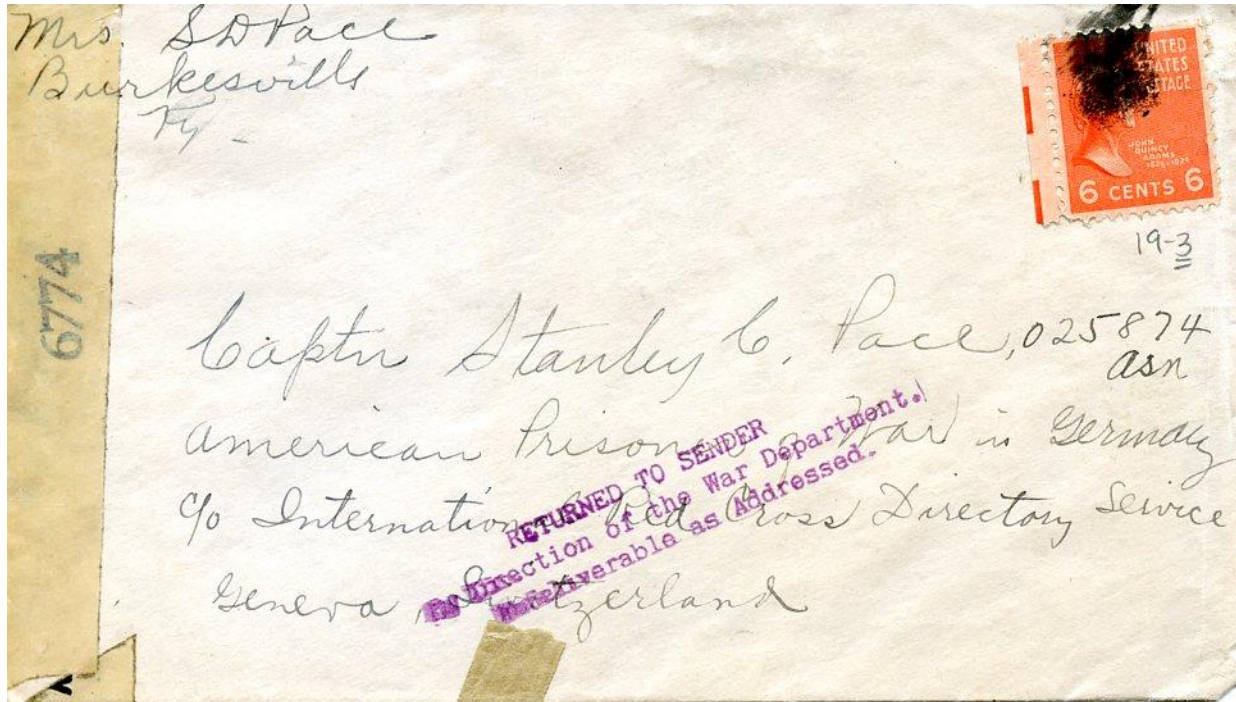 Mrs. S D Pace
Burkesville
Ky -
UNITED
STATES
POSTAGE
JOHN
QUINCY
ADAMS
1825-1829
6 CENTS 6
19-3
6774
Captn Stanley C. Pace, 025874
asn
American Prisoner of War in Germany
c/o International Red Cross Directory Service
Geneva, Switzerland
RETURNED TO SENDER
By Direction of the War Department.
Undeliverable as Addressed.